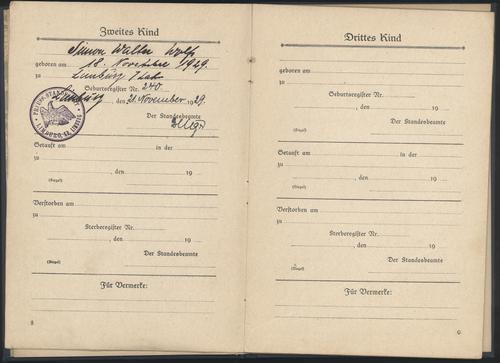 Zweites Kind
Simon Walter Wolf
geboren am 18. November 1929.
zu Limburg / Lahn
Geburtsregister Nr. 240
Limburg, den 21. November 1929.
Der Standesbeamte
(Siegel)
Getauft am in der
zu
, den 19
(Siegel)
Verstorben am
zu
Sterberegister Nr.
, den 19
Der Standesbeamte
(Siegel)
Für Vermerke:
8
Drittes Kind
geboren am
zu
Geburtsregister Nr.
, den 19
Der Standesbeamte
(Siegel)
Getauft am in der
zu
, den 19
(Siegel)
Verstorben am
zu
Sterberegister Nr.
, den 19
Der Standesbeamte
(Siegel)
Für Vermerke:
9